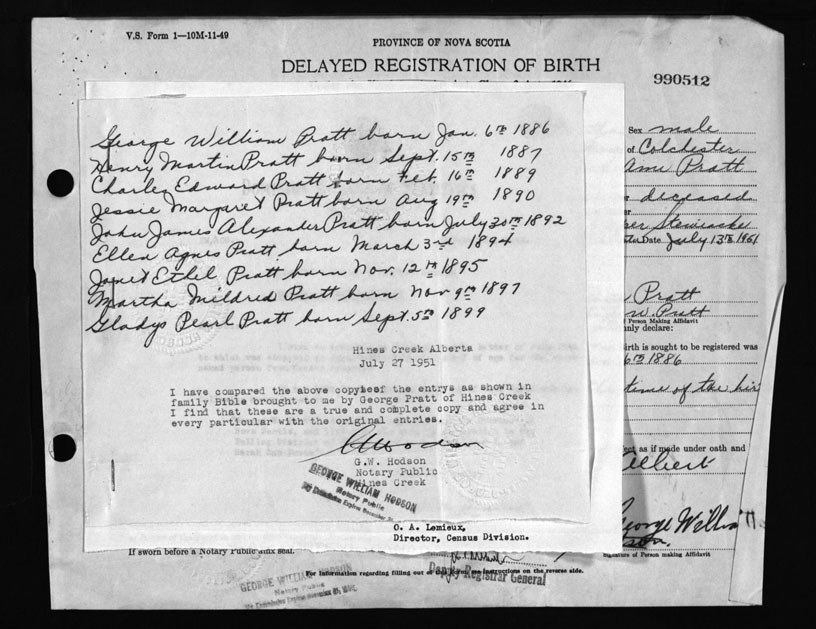 V.S. Form 1—10M-11-49
PROVINCE OF NOVA SCOTIA
DELAYED REGISTRATION OF BIRTH
990512
George William Pratt born Jan. 6th 1886
Henry Martin Pratt born Sept. 15th 1887
Charles Edward Pratt born Feb. 16th 1889
Jessie Margaret Pratt born Aug 19th 1890
John James Alexander Pratt born July 30th 1892
Ellen Agnes Pratt born March 3rd 1894
Janet Ethel Pratt born Nov. 12th 1895
Martha Mildred Pratt born Nov 9th 1897
Gladys Pearl Pratt born Sept. 5th 1899
Hines Creek Alberta
July 27 1951
I have compared the above copy of the entrys as shown in
family Bible brought to me by George Pratt of Hines Creek
I find that these are a true and complete copy and agree in
every particular with the original entries.
G.W. Hodson
Notary Public
Hines Creek
GEORGE WILLIAM HODSON
Notary Public
My Commission Expires December
O. A. Lemieux,
Director, Census Division.
Sex male
of Colchester
Pratt
deceased
Stewiacke
Date July 13th 1951
Pratt
W. Pratt
Person Making Affidavit
declare:
birth is sought to be registered was
6th 1886
time of the bir
as if made under oath and
George Willia
Signature of Person making Affidavit
If sworn before a Notary Public affix seal.
Deputy Registrar General
For information regarding filling out of this see instructions on the reverse side.
GEORGE WILLIAM HODSON
Notary Public
My Commission Expires